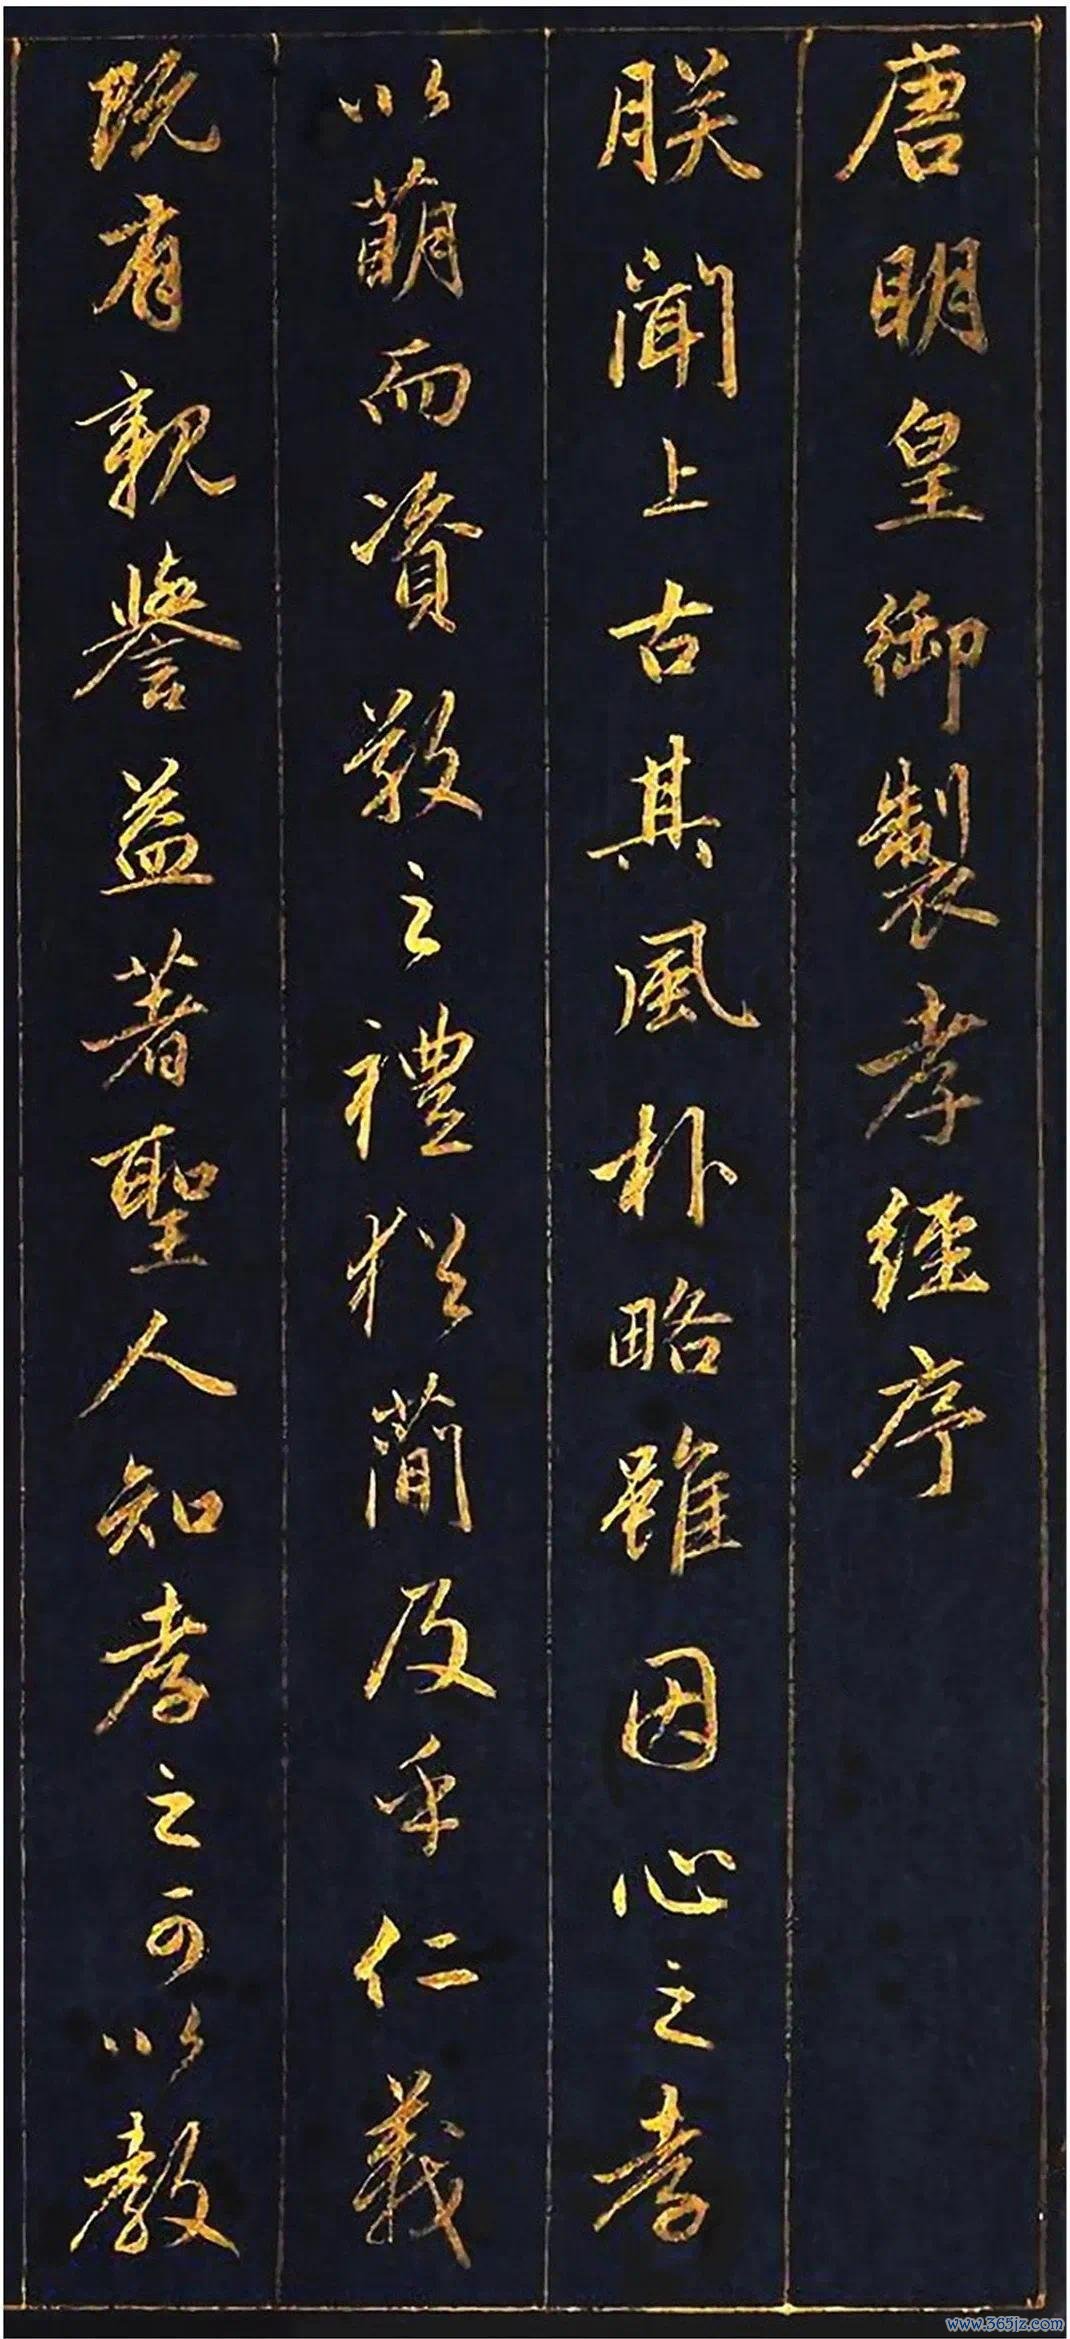 唐明皇御製孝經序
朕聞上古其風朴略雖因心之孝
以萌而資敬之禮猶簡及乎仁義
既有親譽益著聖人知孝之可以教
www.365jz.com